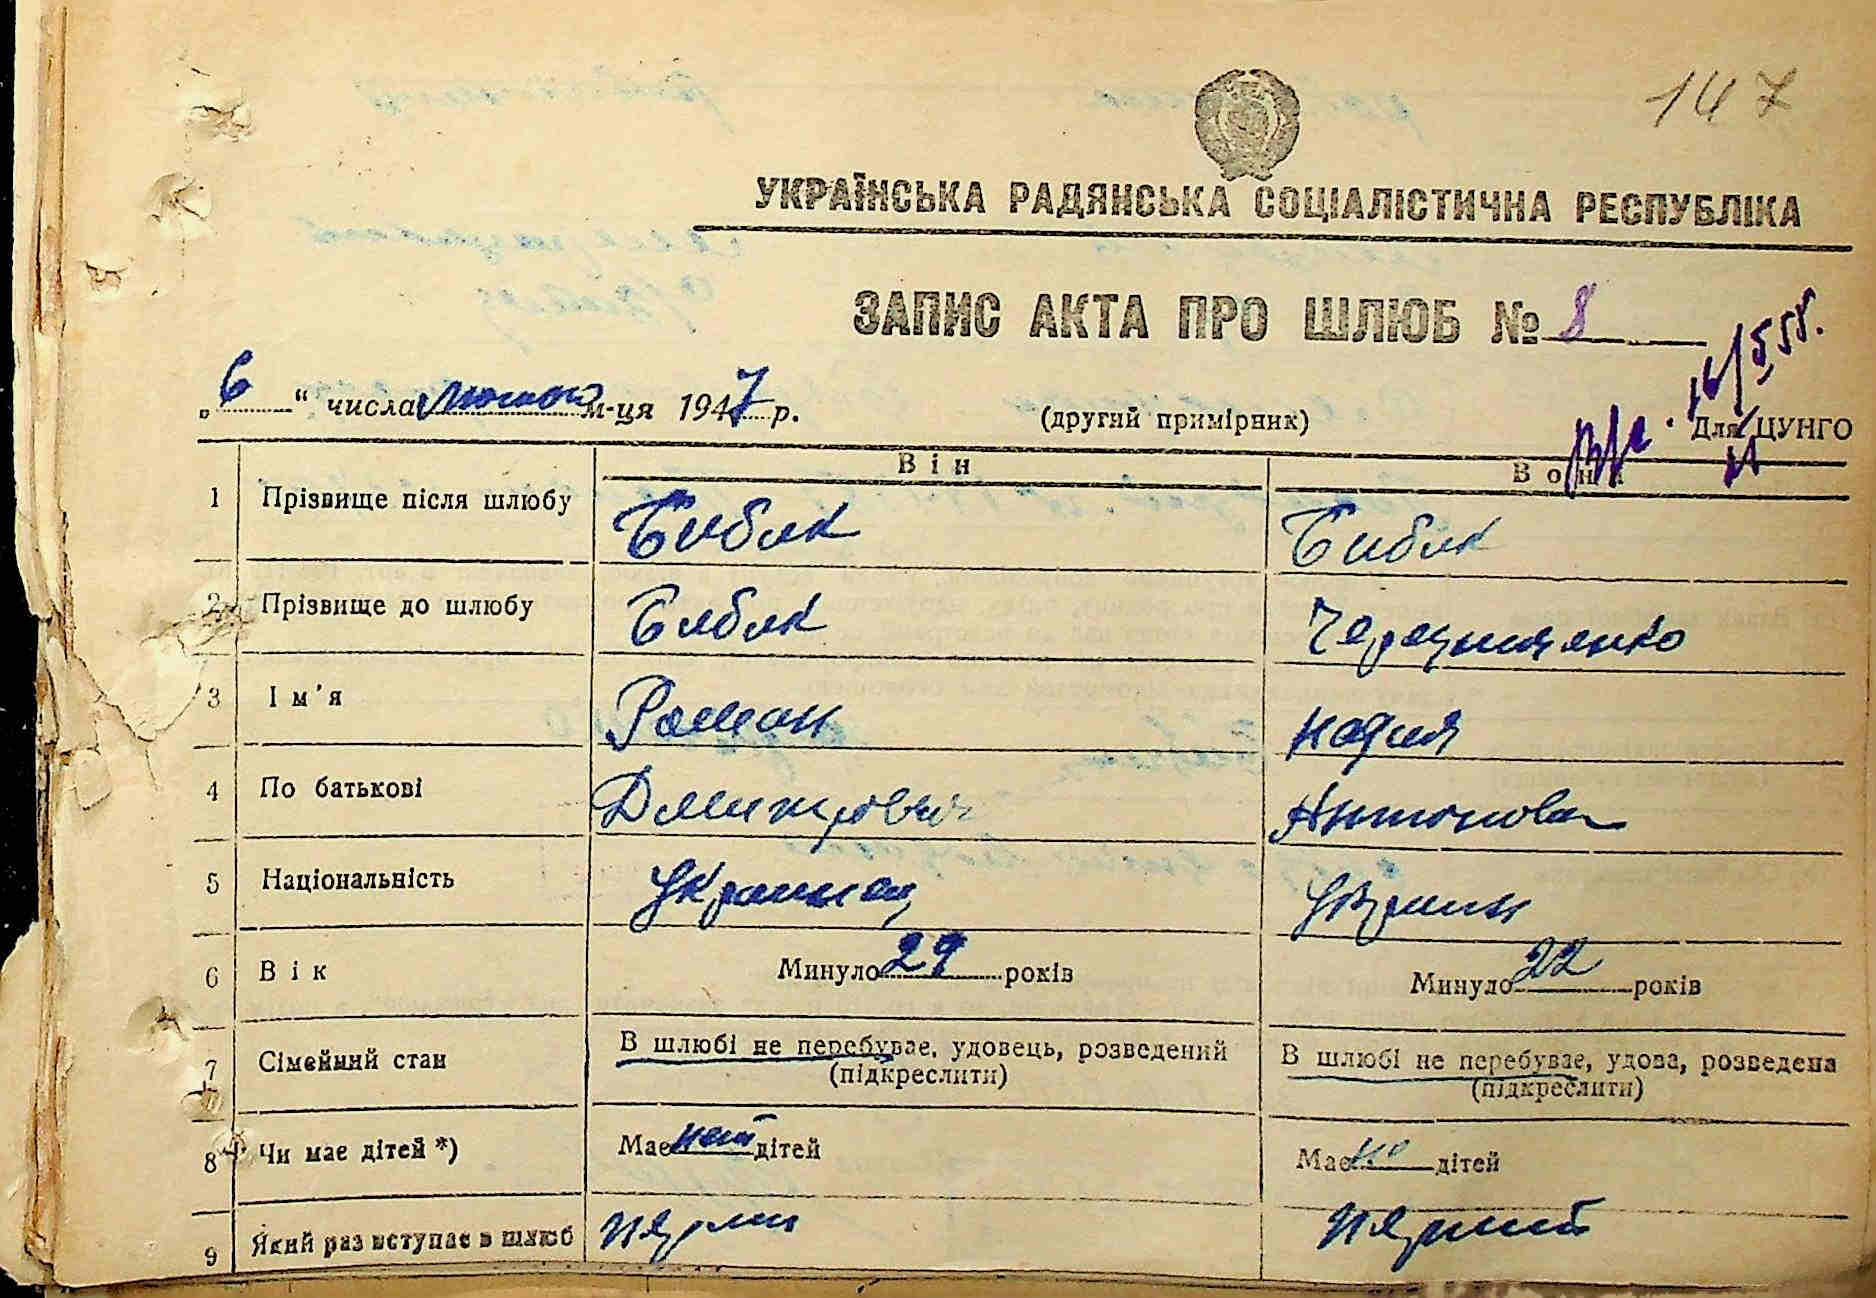 147
УКРАЇНСЬКА РАДЯНСЬКА СОЦІАЛІСТИЧНА РЕСПУБЛІКА
ЗАПИС АКТА ПРО ШЛЮБ № 8
„6“ числа лютого м-ця 1947 р. (другий примірник) Для ЦУНГО
Він Вона
1 Прізвище після шлюбу Бибик Бибик
2 Прізвище до шлюбу Бибик
3 Ім'я Роман Надия
4 По батькові Дмитрович Антоновна
5 Національність Украинец
6 Вік Минуло 29 років Минуло 22 років
7 Сімейний стан В шлюбі не перебуває, удовець, розведений В шлюбі не перебуває, удова, розведена
(підкреслити) (підкреслити)
8 Чи має дітей *) Має нет дітей Має дітей
9 Який раз вступає в шлюб